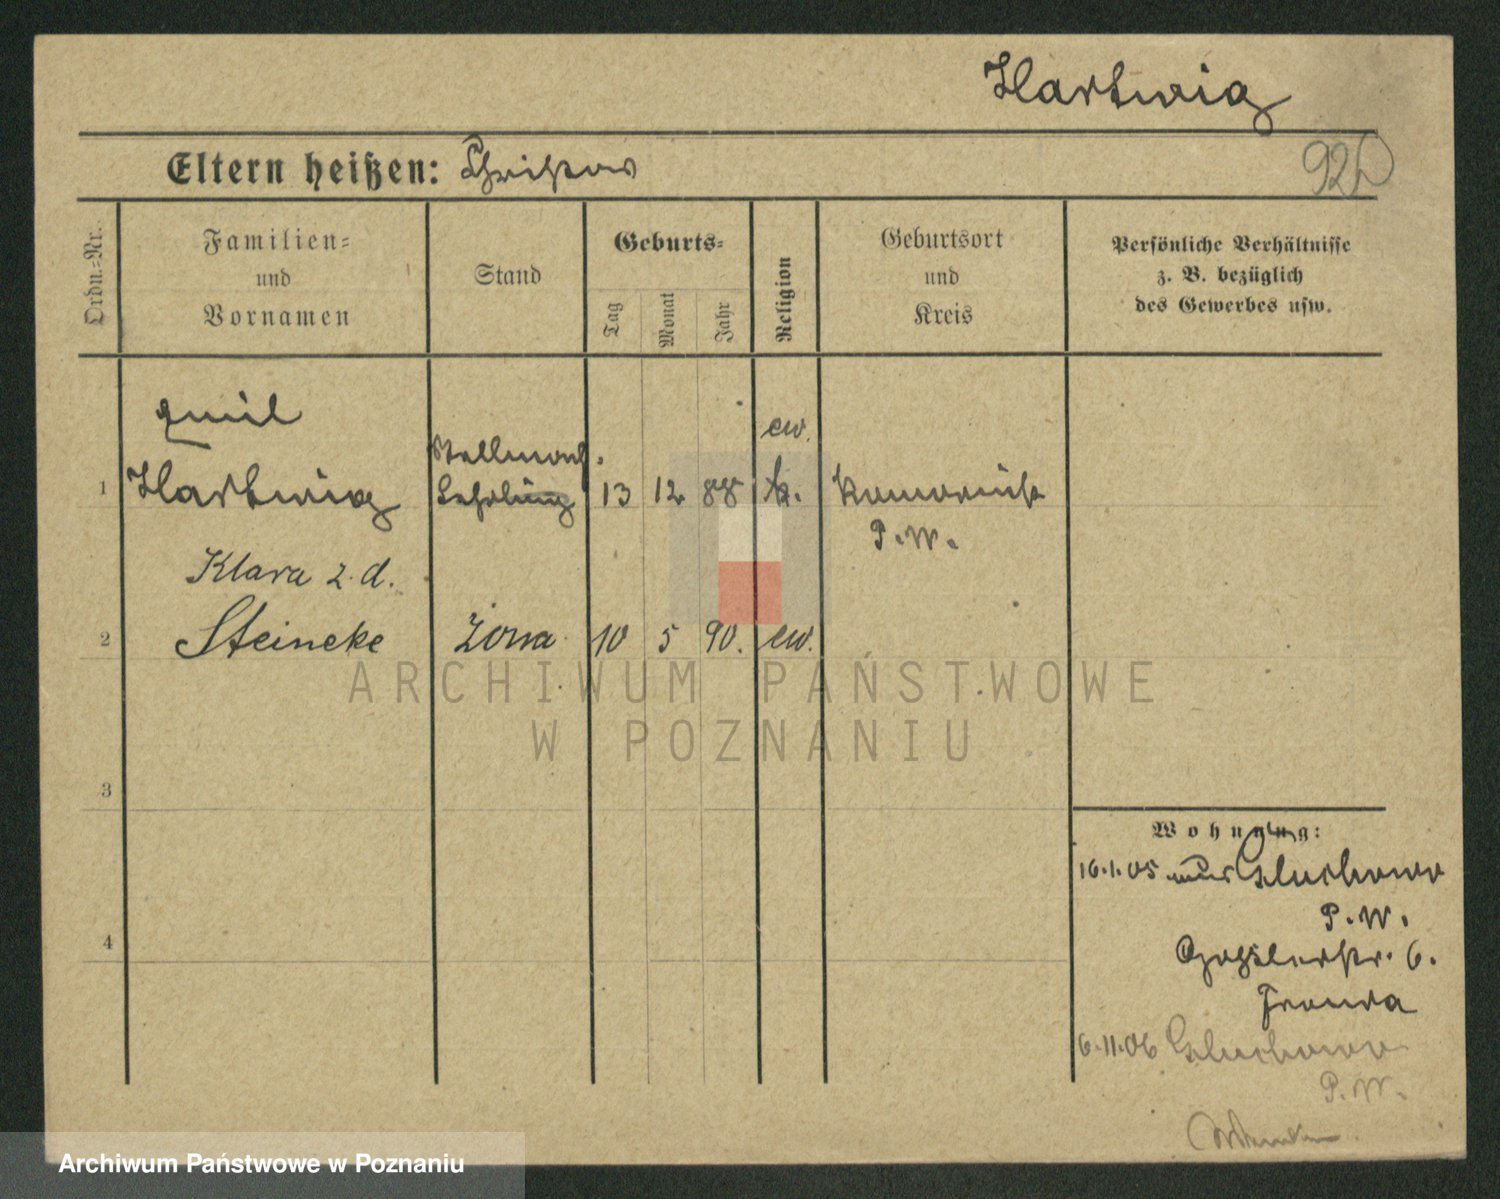 Hartwig
Eltern heißen:
Ordn.-Nr.
Familien-
und
Vornamen
Stand
Geburts-
Tag
Monat
Jahr
Religion
Geburtsort
und
Kreis
Persönliche Verhältnisse
z. B. bezüglich
des Gewerbes usw.
Emil
ew.
Stellmach.
1 Hartwig Lehrling 13 12 88 k.
P.W.
Klara z d.
2 Steineke Żona 10 5 90. ew.
3
Wohnung:
16.1.05 Gluchowo
P.W.
4
6.
6.11.06 Gluchowo
P.W.
ARCHIWUM PAŃSTWOWE
W POZNANIU
Archiwum Państwowe w Poznaniu